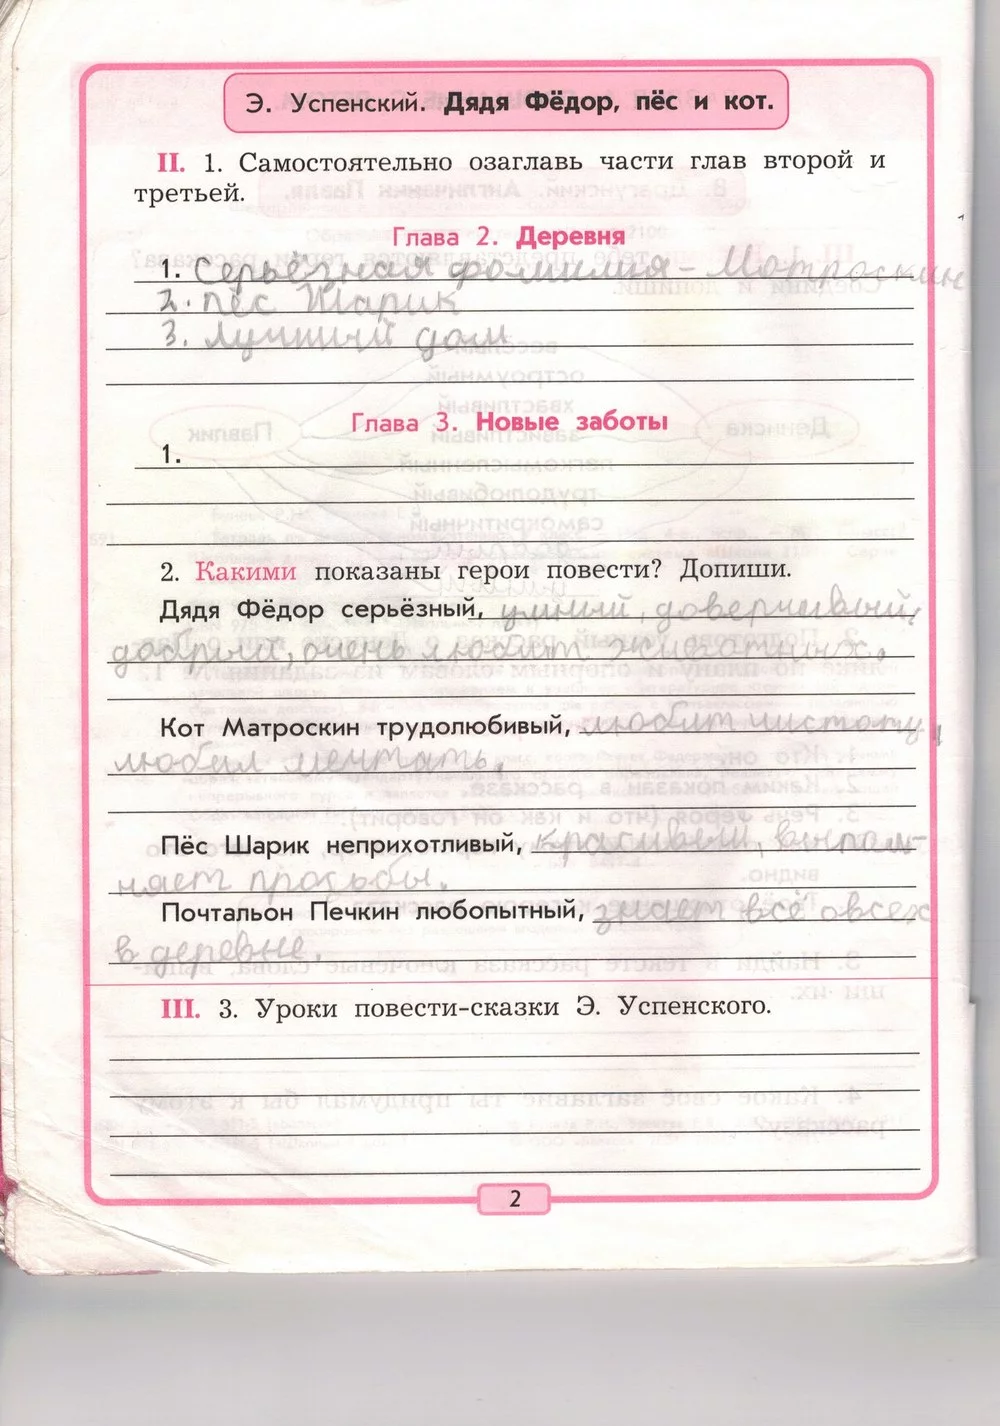 Э. Успенский. Дядя Фёдор, пёс и кот.
II. 1. Самостоятельно озаглавь части глав второй и
третьей.
Глава 2. Деревня
1. Серьёзная фамилия - Мотроскин
2. пёс Шарик
3. лучший дом
Глава 3. Новые заботы
1.
2. Какими показаны герои повести? Допиши.
Дядя Фёдор серьёзный, умный, доверчивый,
добрый, очень любит животных.
Кот Матроскин трудолюбивый, любит чистоту,
любил мечтать.
Пёс Шарик неприхотливый, красивый, выпол-
няет просьбы.
Почтальон Печкин любопытный, знает всё овсех
в деревне.
III. 3. Уроки повести-сказки Э. Успенского.
2